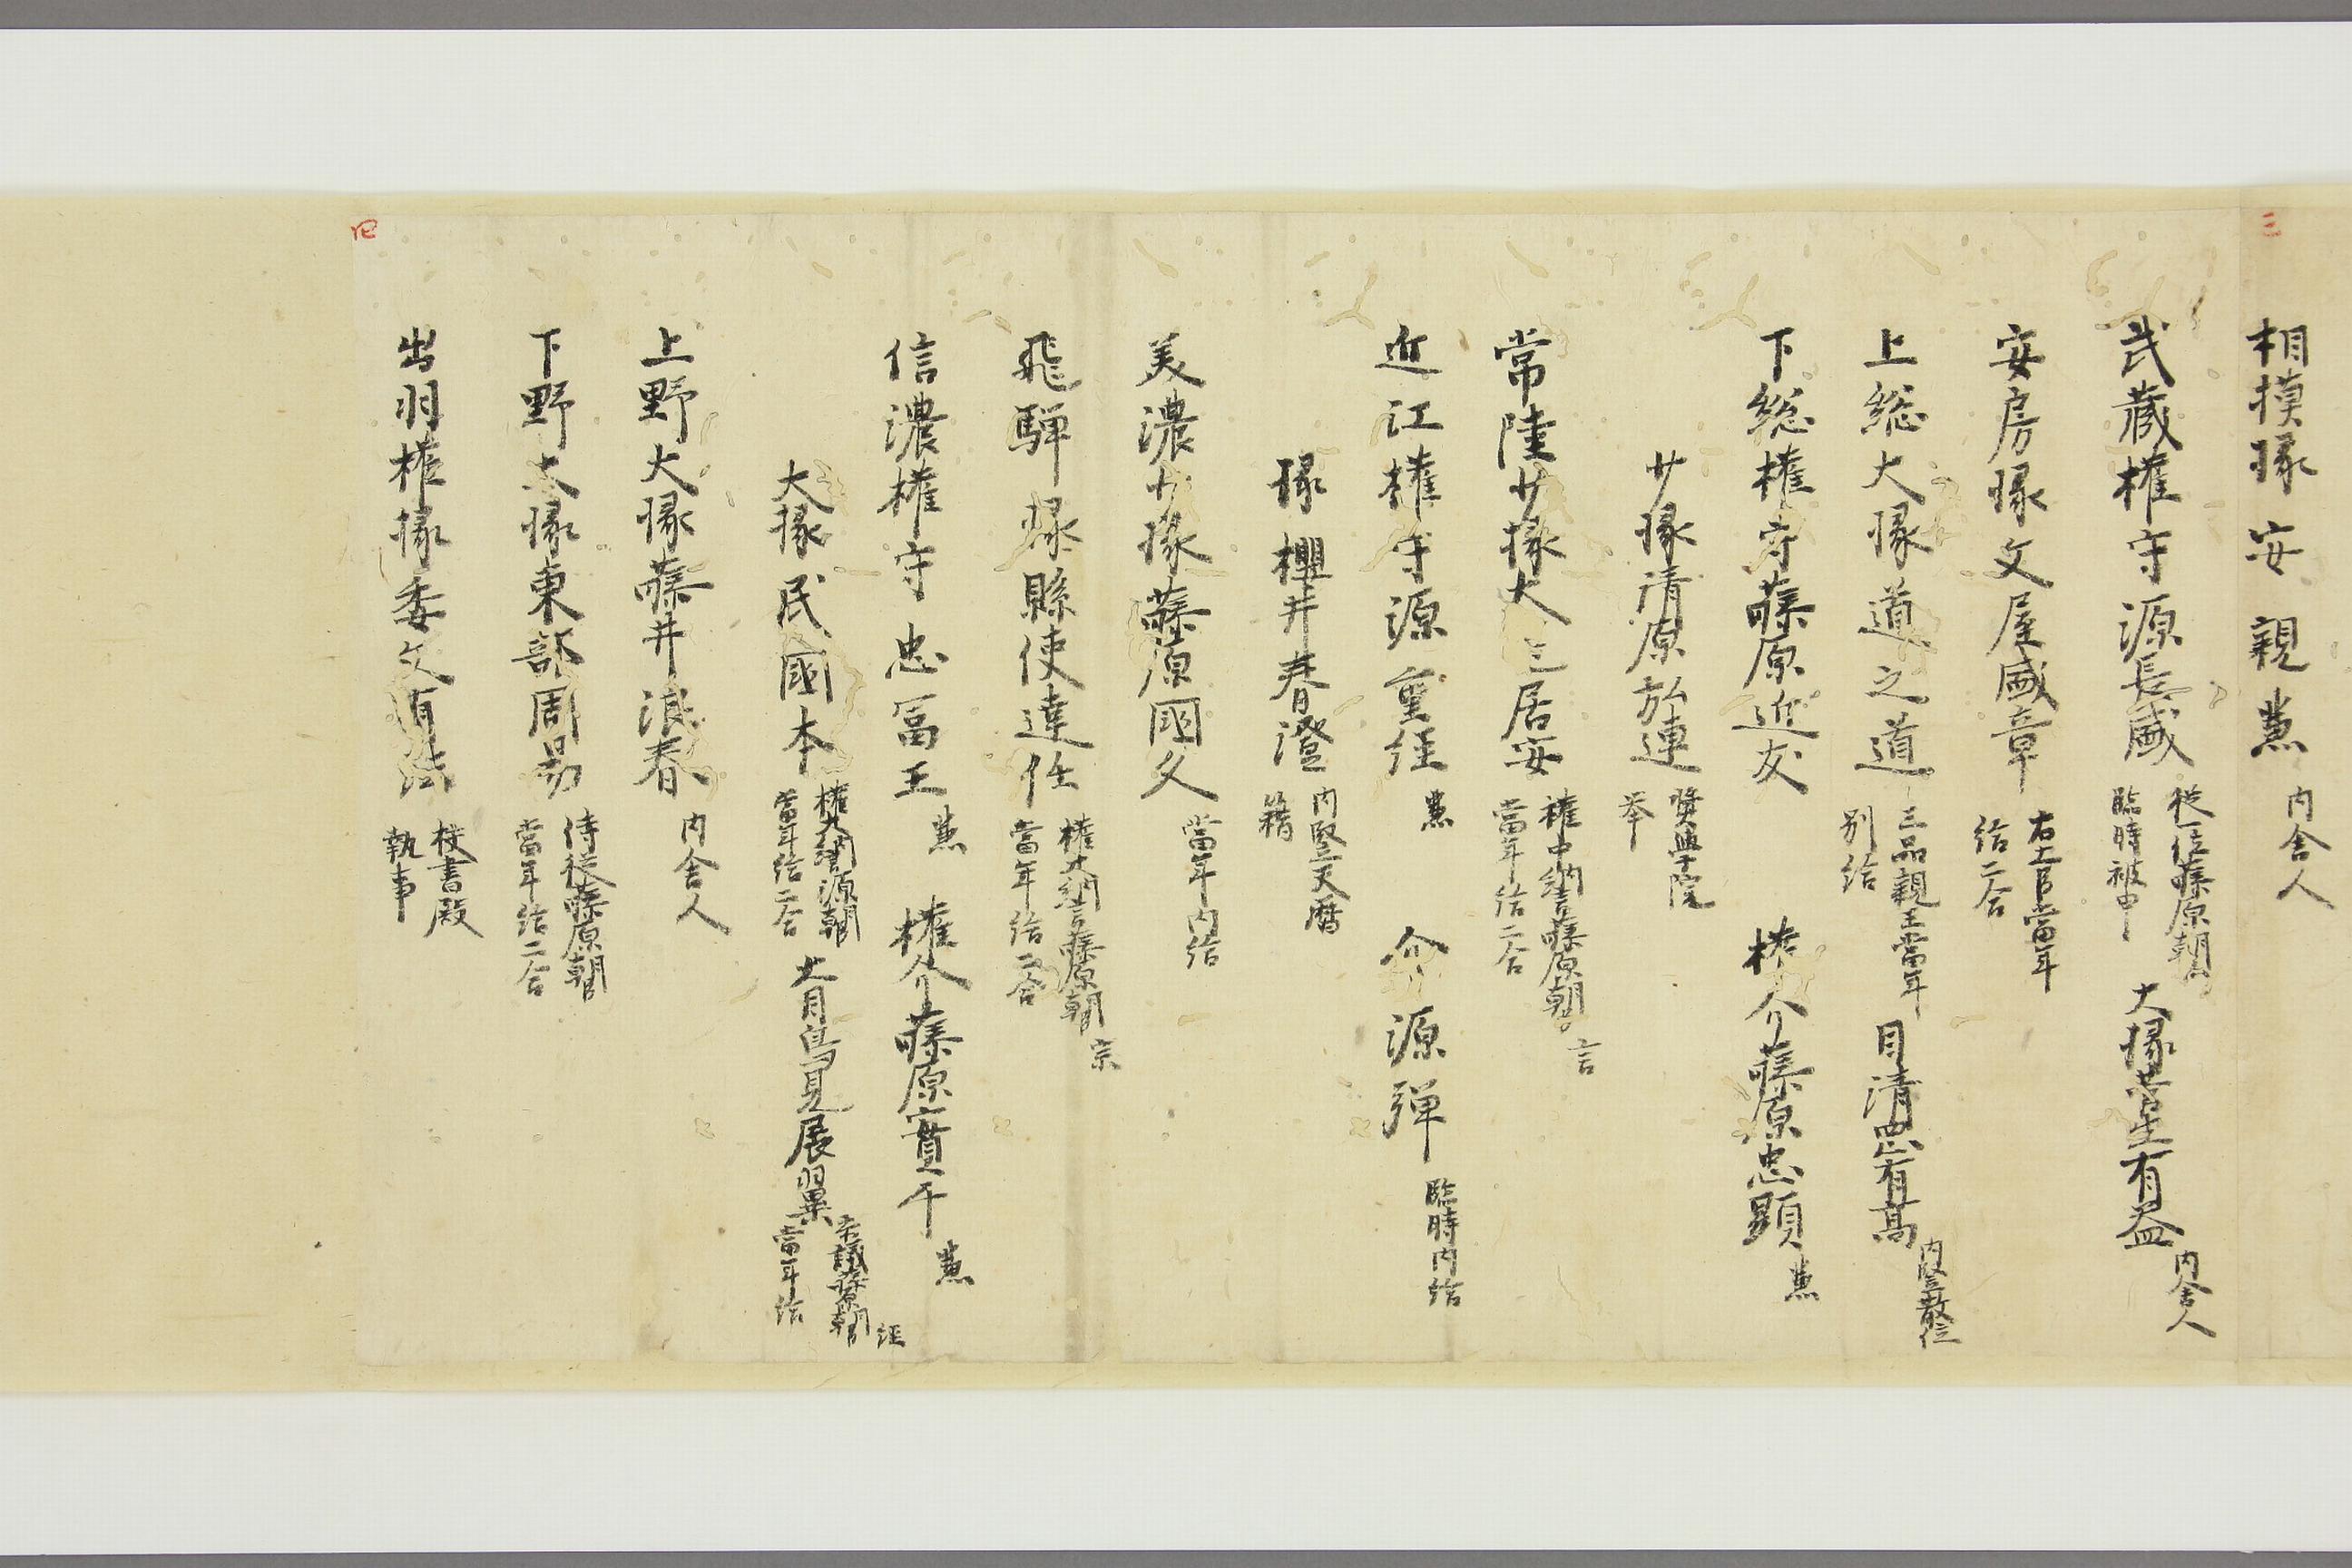 三
相摸掾安親兼 内舎人
武蔵権守源長盛 従一位藤原朝臣
臨時被申
大掾 有益 内舎人
安房掾文屋盛章 右大臣當年
給二合
上総大掾道之道 三品親王當年
別給
目清 有高 内竪散位
下総権守藤原近友 権介藤原忠顕兼
少掾清原於連 奨學院
挙
常陸少掾大三居安 権中納言藤原朝臣 言
當年給二合
近江権守源重経兼 介源弾 臨時内給
掾櫻井春澄 内竪 天暦
籍
美濃少掾藤原國久 當年内給
飛騨掾縣使達任 権大納言藤原朝臣 宗
當年給二合
信濃権守忠冨王兼 権介藤原實平兼
大掾民國本 権大納言源朝臣
當年給二合
少目鳥見展翼 参議藤原朝臣 経
當年給
上野大掾藤井浪春 内舎人
下野大掾東部周易 侍従藤原朝臣
當年給二合
出羽権掾委文有 校書殿
執事
四